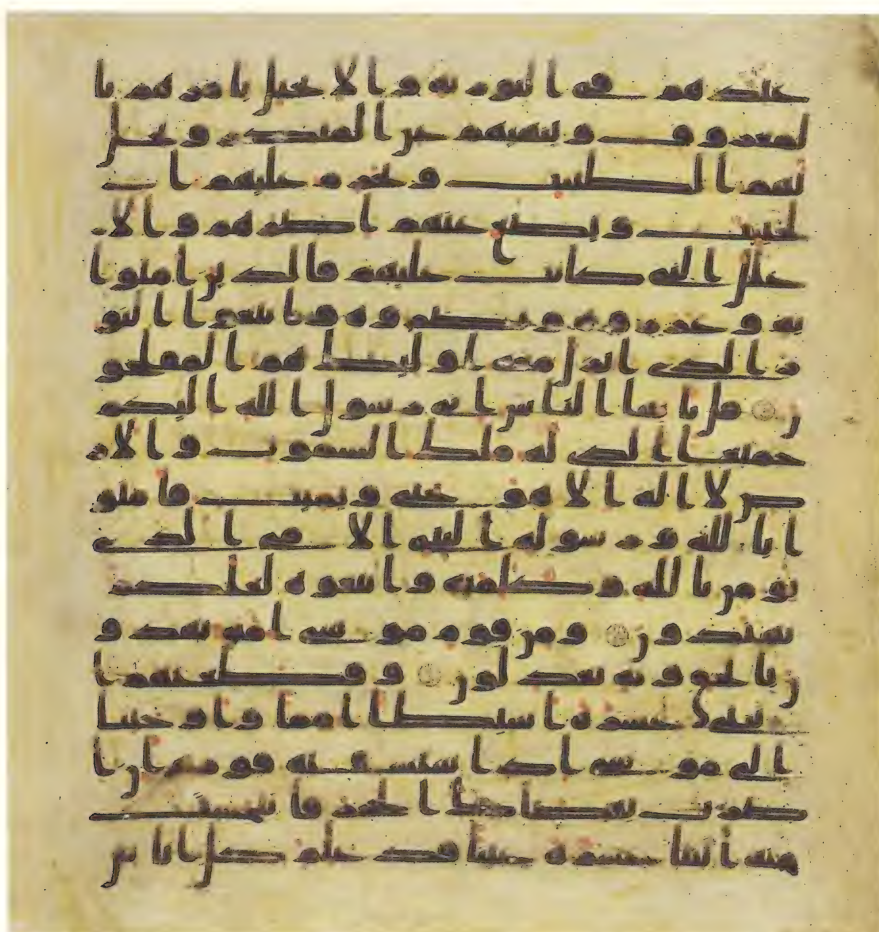 عندهم في التورية والانجيل يامرهم با
لمعروف وينهيهم عن المنكر ويحل
لهم الطيبت ويحرم عليهم ا
لخبيث ويضع عنهم اصرهم والا
غلل التي كانت عليهم فالذين امنوا
به وعزروه ونصروه واتبعوا النو
ر الذي انزل معه اوليك هم المفلحو
ن قل يايها الناس اني رسول الله اليكم
جميعا الذي له ملك السموت والار
ض لا اله الا هو يحي ويميت فامنو
ا بالله ورسوله النبي الامي الذي
يومن بالله وكلمته واتبعوه لعلكم
تهتدون ومن قوم موسى امة يهدو
ن بالحق وبه يعدلون وقطعنهم ا
ثنتي عشرة اسباطا امما واوحينا
الى موسى اذ استسقيه قومه ان ا
ضرب بعصاك الحجر فانبجست
منه اثنتا عشرة عينا قد علم كل اناس